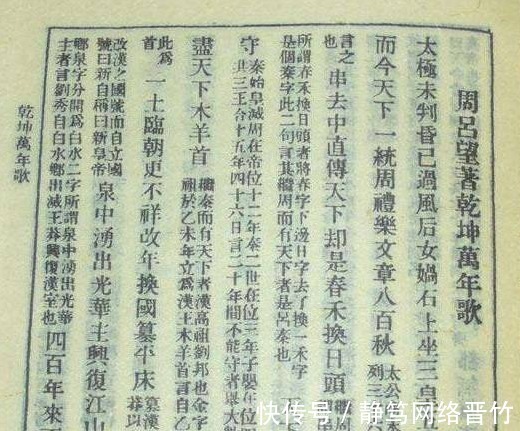 周呂望著乾坤萬年歌
太極未判昏已過風后女媧石上坐三皇
而今天下一統周禮樂文章八百秋
太公
列三
言之
也
串去中直傳天下却是春禾換日頭
所謂春禾換日頭者將春字下邊日字去了換一禾字
是個秦字此二句言其繼周而有天下者是呂秦也
守
秦始皇滅周在帝位十二年秦二世在位三年子嬰在位
共三王合十五年四十六日言二十年間不能守者舉大
盡天下木羊首
繼秦而有天下者漢高祖劉邦也金字
祖於乙未年立爲漢王木羊首言自乙
此爲
首
一士臨朝更不祥改年換國篡平床
篡漢
莽以
改漢之國號而自立國
號曰新自稱曰新皇帝
泉中湧出光華主興復江山
鄉泉字分開爲白水二字所謂泉中湧出光華
主者言劉秀自白水鄉出滅王莽興復漢室也
四百年來
乾坤萬年歌
快传号 / 静笃网络晋竹